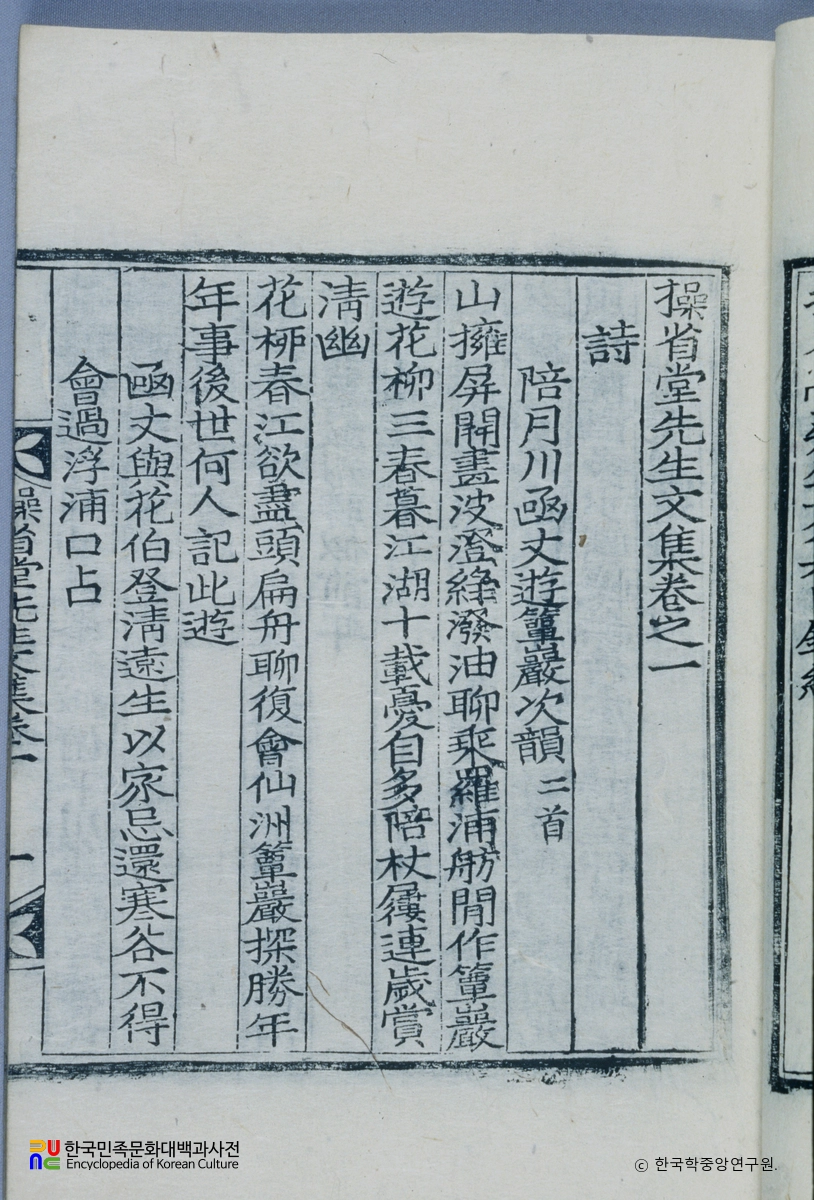 操省堂先生文集卷之一
詩
陪月川函丈遊簞巖次韻 二首
山擁屏開畫波澄綠潑油聊乘羅浦舫閒作簞巖
遊花柳三春暮江湖十載憂自多陪杖屨連歲賞
淸幽
花柳春江欲盡頭扁舟聊復會仙洲簞巖探勝年
年事後世何人記此遊
函丈與花伯登淸遠生以家忌還寒谷不得
會過浮浦口占
操省堂先生文集卷一
一
한국민족문화대백과사전
Encyclopedia of Korean Culture
ⓒ 한국학중앙연구원.